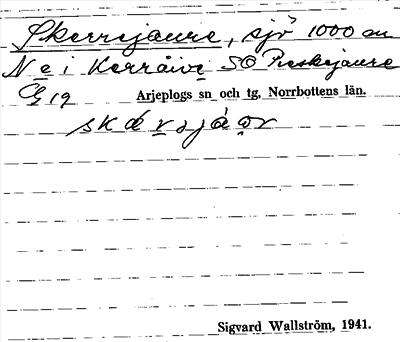 Skerrejaure, sjö 1000 m
N e i Kerráive SO Pieskejaure
Cg 19 Arjeplogs sn och tg, Norrbottens län.
skærsjàor
Sigvard Wallström, 1941.